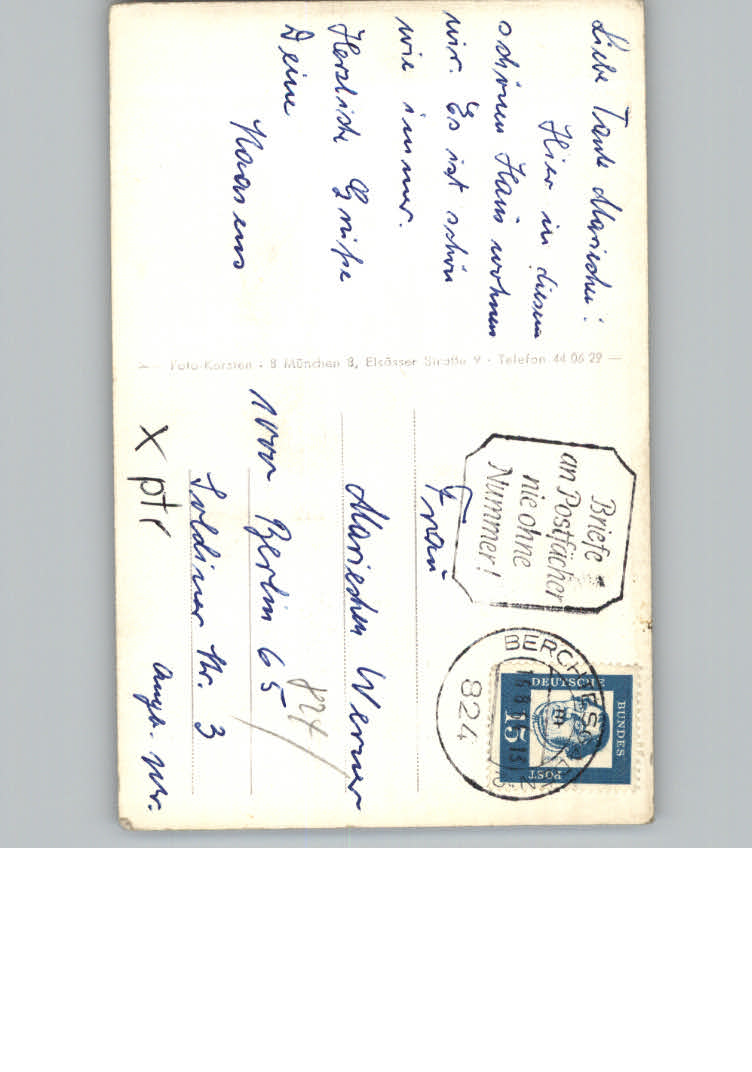 Liebe Tante Mariechen!
Hier in diesem
schönen Haus wohnen
wir. Es ist schön
wie immer.
Herzliche Grüße
Deine
Foto-Korsten · 8 München 8, Elsässer Straße 9 · Telefon 44 06 29
Briefe
an Postfächer
nie ohne
Nummer!
BERCHTESGADEN
824
DEUTSCHE
BUNDES
POST
15
Frau
Mariechen Werner
1000 Berlin 65
824
Soldiner Str. 3
X ptr